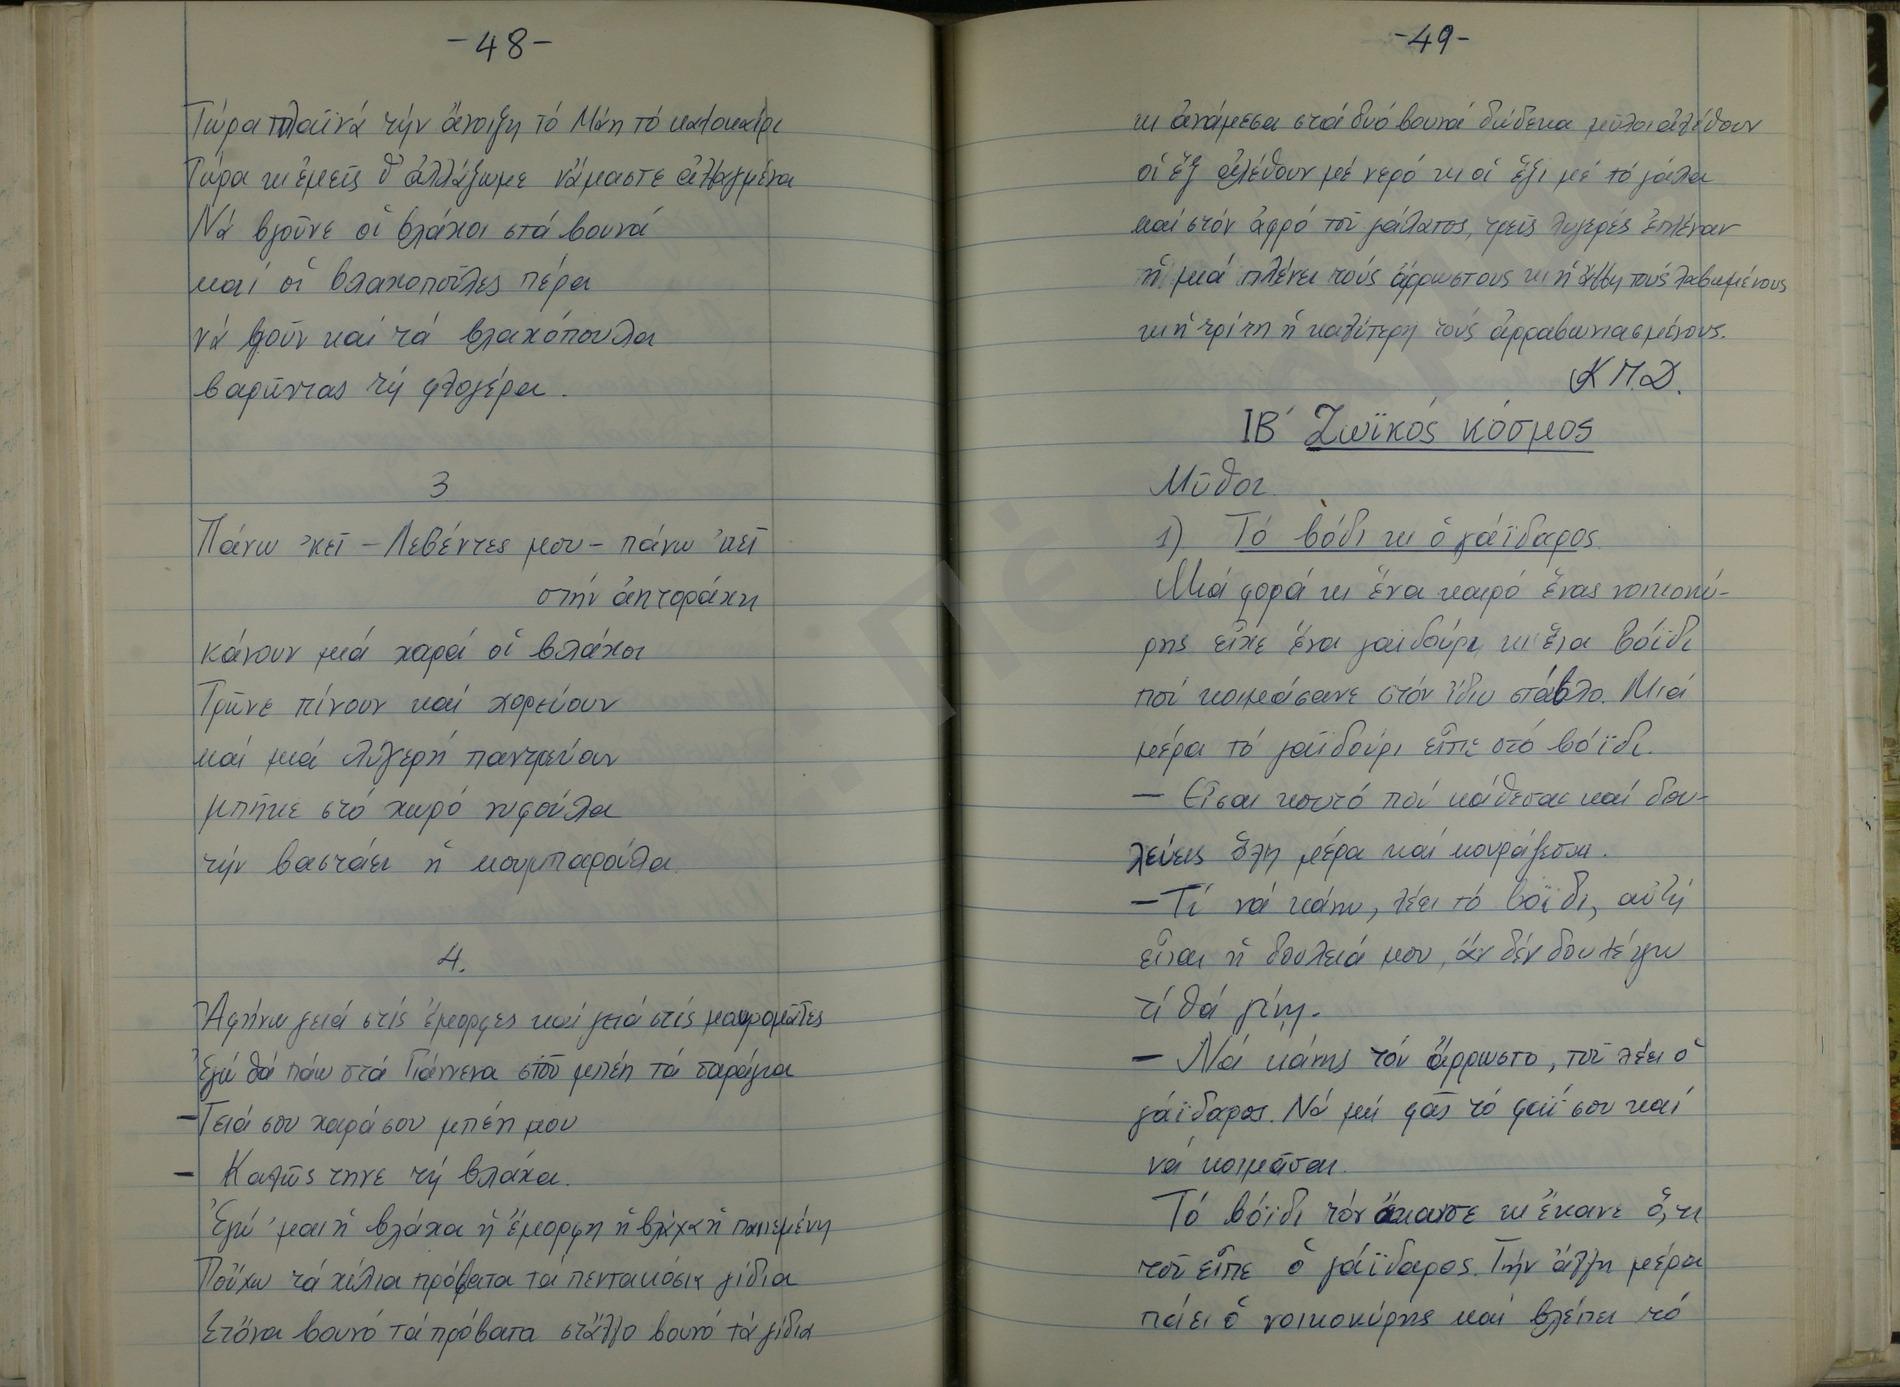 -48-
Τώρα πλαϊνά τήν ἄνοιξη τό Μάη τό καλοκαίρι
Τώρα κι ἐμεῖς θ' ἀλλάξωμε νἄμαστε ἀλλαγμένα
Νά βγοῦνε οἱ βλάχοι στά βουνά
καί οἱ βλαχοποῦλες πέρα
νά βγοῦν καί τά βλαχόπουλα
βαρῶντας τή φλογέρα.
3
Πάνω 'κεῖ - Λεβέντες μου - πάνω 'κεῖ
στήν ἀητοράχη
κάνουν μιά χαρά οἱ βλάχοι
Τρῶνε πίνουν καί χορεύουν
καί μιά λυγερή παντρεύουν
μπῆκε στό χορό νυφούλα
τήν βαστάει ἡ κουμπαρούλα.
4.
Ἀφήνω γειά στίς ἔμορφες καί γειά στίς μαυρομάτες
Ἐγώ θά πάω στά Γιάννενα στοῦ μπέη τά σαράγια
- Γειά σου χαρά σου μπέη μου
- Καλῶς τηνε τή βλάχα.
Ἐγώ 'μαι ἡ βλάχα ἡ ἔμορφη ἡ βλάχα ἡ παινεμένη
Πὄχω τά χίλια πρόβατα τά πεντακόσια γίδια
Στὄνα βουνό τά πρόβατα στἄλλο βουνό τά γίδια
-49-
κι ἀνάμεσα στά δυό βουνά δώδεκα μύλοι ἀλέθουν
οἱ ἕξ ἀλέθουν μέ νερό κι οἱ ἕξι μέ τό γάλα
καί στόν ἀφρό τοῦ γάλατος, τρεῖς λυγερές ἐπλέναν
ἡ μιά πλένει τούς ἄρρωστους κι ἡ ἄλλη τούς λαβωμένους
κι ἡ τρίτη ἡ καλύτερη τούς ἀρραβωνιασμένους.
Κ Π.Δ.
ΙΒ΄ Ζωϊκός κόσμος
Μῦθοι.
1) Τό βόδι κι ὁ γάϊδαρος.
Μιά φορά κι ἕνα καιρό ἕνας νοικοκύ-
ρης εἶχε ἕνα γαϊδούρι κι ἕνα βόϊδι
πού κοιμόσανε στόν ἴδιο στάβλο. Μιά
μέρα τό γαϊδούρι εἶπε στό βόϊδι.
- Εἶσαι κουτό πού κάθεσαι καί δου-
λεύεις ὅλη μέρα καί κουράζεσαι.
- Τί νά κάνω, λέει τό βόϊδι, αὐτή
εἶναι ἡ δουλειά μου, ἄν δέν δουλέψω
τί θά γίνη.
- Νά κάνης τόν ἄρρωστο, τοῦ λέει ὁ
γάϊδαρος. Νά μή φᾶς τό φαΐ σου καί
νά κοιμᾶσαι.
Τό βόϊδι τόν ἄκουσε κι ἔκανε ὅ,τι
τοῦ εἶπε ὁ γάϊδαρος. Τήν ἄλλη μέρα
πάει ὁ νοικοκύρης καί βλέπει τό